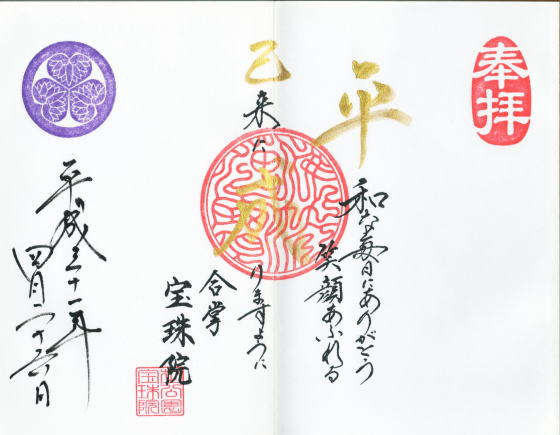 奉拝
平和な毎日にありがとう
笑顔あふれる
来に
りますように
合掌
宝珠院
平成三十一年
四月二十六日